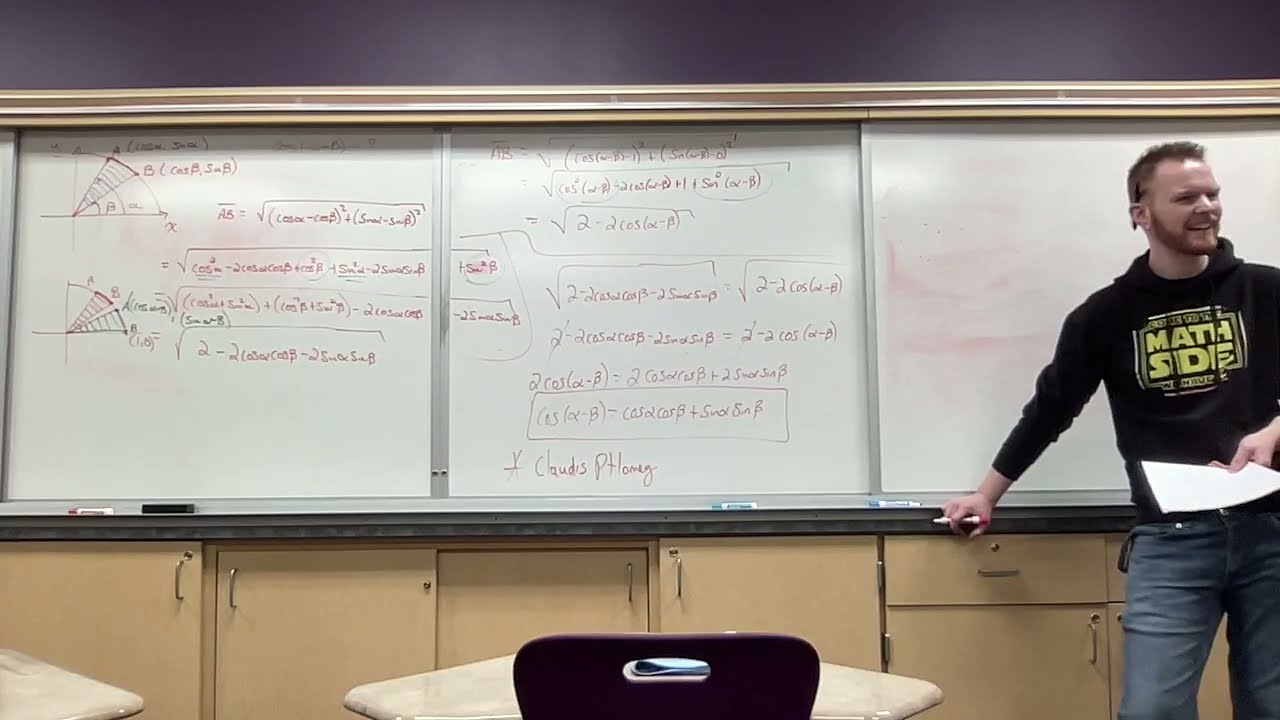 A (cosα, sinα)
B (cosβ, sinβ)
β α x
AB = √((cosα-cosβ)² + (sinα-sinβ)²)
= √(cos²α - 2cosαcosβ + cos²β + sin²α - 2sinαsinβ + sin²β)
A B
A (cosα-β)
(sinα-β)
= √((cos²α + sin²α) + (cos²β + sin²β) - 2cosαcosβ - 2sinαsinβ)
B (1,0)
= √(2 - 2cosαcosβ - 2sinαsinβ)
AB = √((cos(α-β)-1)² + (sin(α-β)-0)²)
= √(cos²(α-β) - 2cos(α-β) + 1 + sin²(α-β))
= √(2 - 2cos(α-β))
√(2 - 2cosαcosβ - 2sinαsinβ) = √(2 - 2cos(α-β))
2 - 2cosαcosβ - 2sinαsinβ = 2 - 2cos(α-β)
2cos(α-β) = 2cosαcosβ + 2sinαsinβ
cos(α-β) = cosαcosβ + sinαsinβ
* Claudis Ptlomey
COME TO THE
MATH
SIDE
WE HAVE